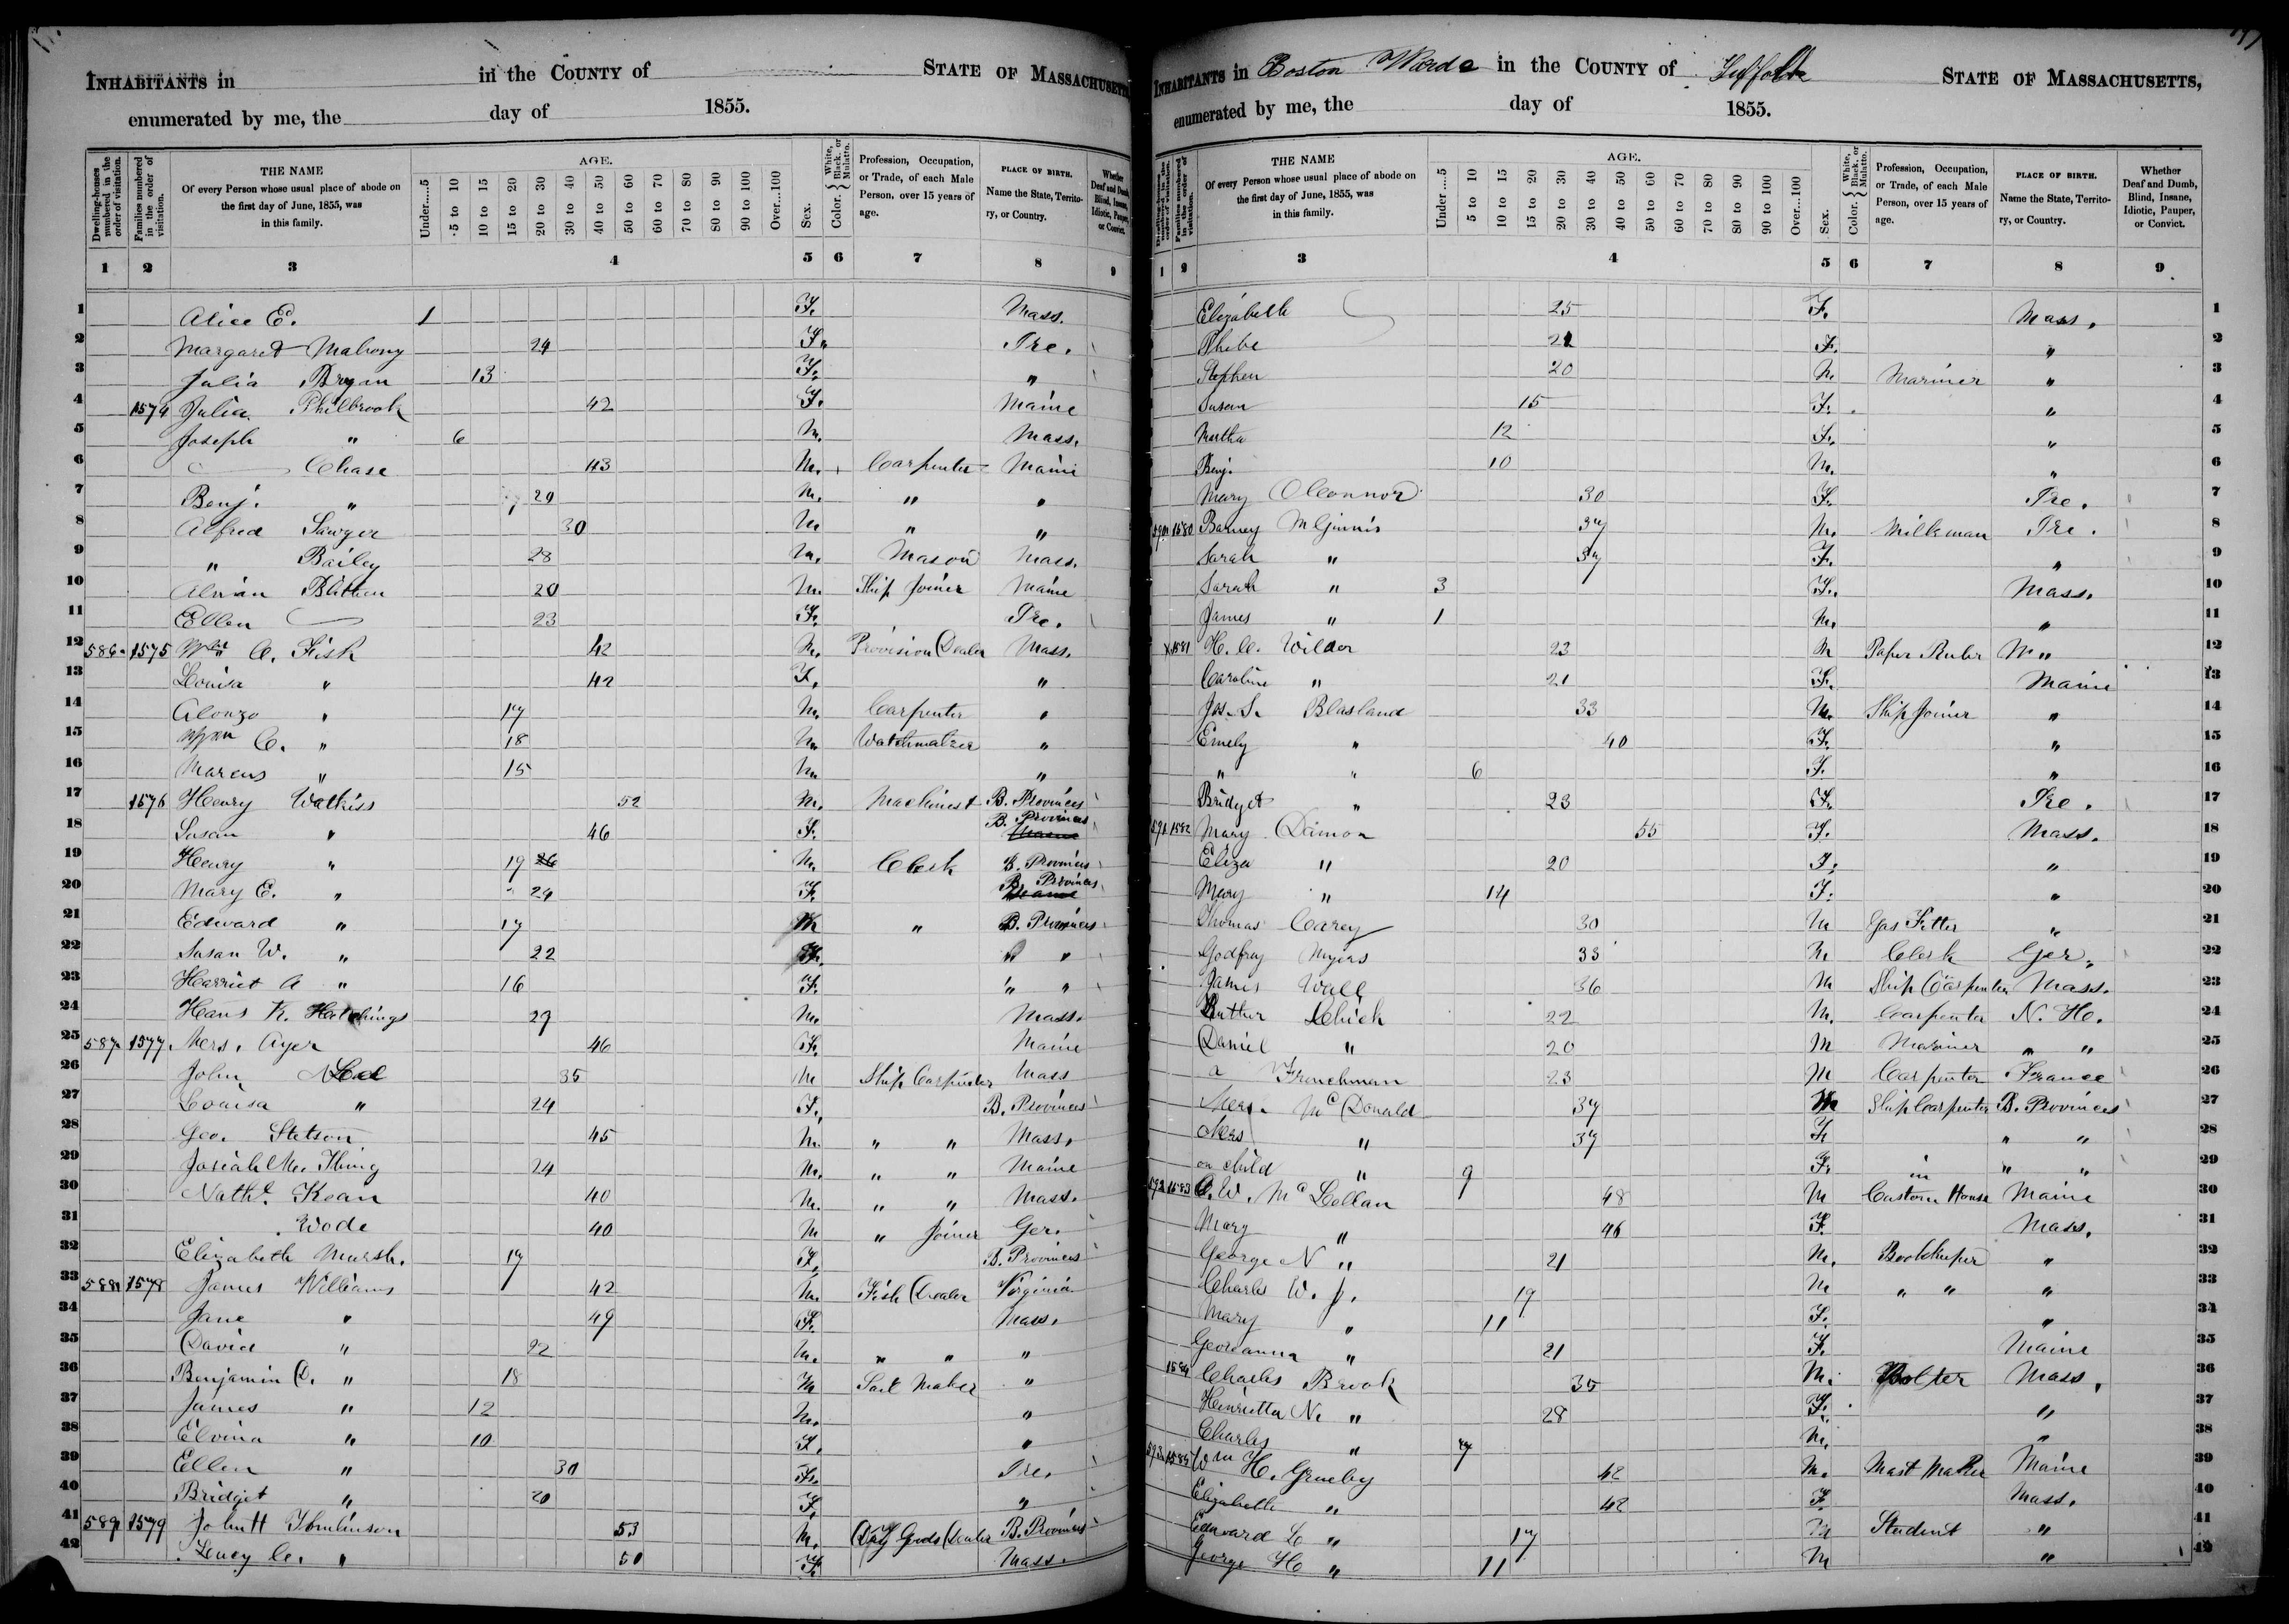 INHABITANTS in in the COUNTY of STATE OF MASSACHUSETTS
enumerated by me, the day of 1855.
Dwelling-houses numbered in the order of visitation.
Families numbered in the order of visitation.
THE NAME
Of every Person whose usual place of abode on
the first day of June, 1855, was
in this family.
AGE.
Under....5 5 to 10 10 to 15 15 to 20 20 to 30 30 to 40 40 to 50 50 to 60 60 to 70 70 to 80 80 to 90 90 to 100 Over...100
Sex.
Color. { White, Black, or Mulatto.
Profession, Occupation,
or Trade, of each Male
Person, over 15 years of
age.
PLACE OF BIRTH.
Name the State, Territo-
ry, or Country.
Whether
Deaf and Dumb,
Blind, Insane,
Idiotic, Pauper,
or Convict.
1 2 3 4 5 6 7 8 9
1 Alice E. 1 F. Mass.
2 Margaret Mahony 24 F. Ire.
3 Julia Bryan 13 F. "
4 1574 Julia Philbrook 42 F. Maine
5 Joseph " 6 M. Mass.
6 Chase 43 M. Carpenter Maine
7 Benj. " 29 M. " "
8 Alfred Sawyer 30 M. " "
9 " Bailey 28 M. Mason Mass.
10 20 M. Ship Joiner Maine
11 Ellen 23 F. Ire.
12 586 1575 Wm A. Fisk 42 M. Provision Dealer Mass.
13 Louisa " 42 F. "
14 Alonzo " 17 M. Carpenter "
15 Wm C. " 18 M. Watchmaker "
16 Marcus " 15 M. "
17 1576 Henry Watkiss 52 M. Machinest B. Provinces
18 Susan " 46 F. B. Provinces
19 Henry " 19 26 M. Clerk B. Provinces
20 Mary E. " 24 F. B. Provinces
21 Edward " 17 M " B. Provinces
22 Susan W. " 22 F. " "
23 Harriet A " 16 F. " "
24 Hans K. Hatchings 29 M. Mass.
25 587 1577 Mers. Ayer 46 F. Maine
26 John 35 M Ship Carpenter Mass
27 Louisa " 24 F. B. Provinces
28 Geo. Stetson 45 M. " " Mass.
29 Josiah M. Thing 24 M. " " Maine
30 Nathl. Kean 40 M. " " Mass.
31 Wode 40 M " Joiner Ger.
32 Elizabeth Marsh. 17 F. B. Provinces
33 588 1578 James Williams 42 M. Fish Dealer Virginia
34 Jane " 49 F. Mass.
35 David " 22 M. " " "
36 Benjamin D. " 18 M Sail Maker "
37 James " 12 M. "
38 Elvina " 10 F. "
39 Ellen " 30 F. Ire.
40 Bridget " 20 F. "
41 589 1579 John H Tomlinson 53 M. Dry Goods Dealer B. Provinces
42 Lucy C. " 50 F. Mass.
INHABITANTS in Boston Ward 2 in the COUNTY of Suffolk STATE OF MASSACHUSETTS,
enumerated by me, the day of 1855.
Dwelling-houses numbered in the order of visitation.
Families numbered in the order of visitation.
THE NAME
Of every Person whose usual place of abode on
the first day of June, 1855, was
in this family.
AGE.
Under....5 5 to 10 10 to 15 15 to 20 20 to 30 30 to 40 40 to 50 50 to 60 60 to 70 70 to 80 80 to 90 90 to 100 Over...100
Sex.
Color. { White, Black, or Mulatto.
Profession, Occupation,
or Trade, of each Male
Person, over 15 years of
age.
PLACE OF BIRTH.
Name the State, Territo-
ry, or Country.
Whether
Deaf and Dumb,
Blind, Insane,
Idiotic, Pauper,
or Convict.
1 2 3 4 5 6 7 8 9
Elizabeth 25 F. Mass. 1
Phebe 21 F. " 2
Stephen 20 M. Mariner " 3
Susan 15 F. " 4
Martha 12 F. " 5
Benj. 10 M. " 6
Mary OConnor 30 F. Ire. 7
590 1580 Barney McGinnis 37 M. Milkman Ire. 8
Sarah " 37 F. " 9
Sarah " 3 F. Mass. 10
James " 1 M. " 11
1581 H. C. Wilder 23 M Paper Ruler M " 12
Caroline " 21 F. Maine 13
Jas. S. Blasland 33 M. Ship Joiner " 14
Emely " 40 F. " 15
" " 6 F. " 16
Bridget " 23 F. Ire. 17
591 1582 Mary Daimon 55 F. Mass. 18
Eliza " 20 F. " 19
Mary " 14 F. " 20
Thomas Carey 30 M Gas Fitter " 21
Godfrey Myers 33 M Clerk Ger. 22
James Wall 36 M Ship Carpenter Mass. 23
Luther Chick 22 M. Carpenter N. H. 24
Daniel " 20 M Mariner " " 25
a Frenchman 23 M Carpenter France 26
Mers. McDonald 37 M Ship Carpenter B. Provinces 27
Mers " 37 F " " 28
on child " 9 F. " " 29
592 1583 C. W. McLellan 48 M in Custom House Maine 30
Mary " 46 F. Mass. 31
George N " 21 M. Bookkeeper " 32
Charles W. J. 19 M " " " 33
Mary " 11 F. " 34
Georeanna " 21 F. Maine 35
1584 Charles Brook 35 M. Mass. 36
Henrietta N. " 28 F. " 37
Charles " 7 M. " 38
593 1585 Wm H. Grueby 42 M. Mast Maker Maine 39
Elizabeth " 42 F. Mass. 40
Edward L " 17 M Student " 41
George H " 11 M " 42